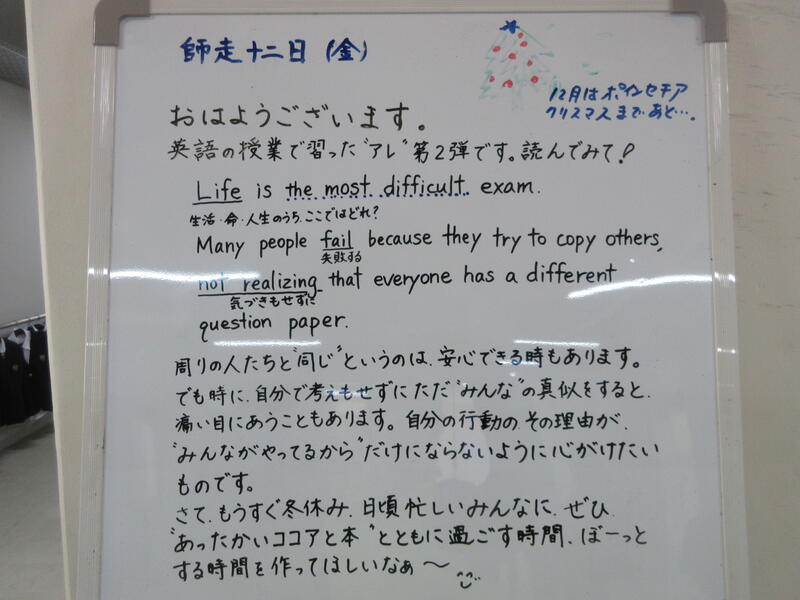 師走十二日(金)
12月はポインセチア
クリスマスまであと…。
おはようございます。
英語の授業で習った"アレ"第2弾です。読んでみて!
Life is the most difficult exam.
生活・命・人生のうち、ここではどれ?
Many people fail because they try to copy others,
失敗する
not realizing that everyone has a different
気づきもせずに
question paper.
周りの人たちと"同じ"というのは、安心できる時もあります。
でも時に、自分で考えもせずにただ"みんな"の真似をすると、
痛い目にあうこともあります。自分の行動の、その理由が、
"みんながやってるから"だけにならないように心がけたい
ものです。
さて、もうすぐ冬休み、日頃忙しいみんなに、ぜひ、
"あったかいココアと本"とともに過ごす時間、ぼーっと
する時間を作ってほしいなぁ〜